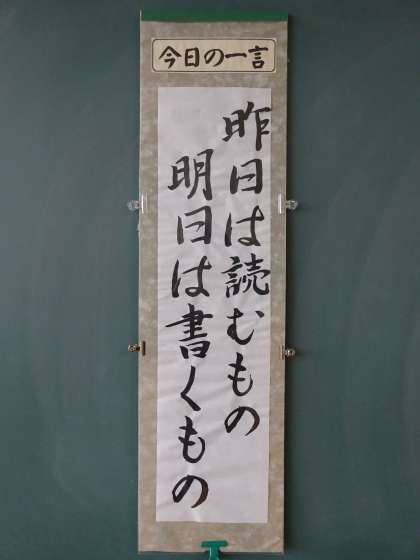 今日の一言
昨日は読むもの
明日は書くもの